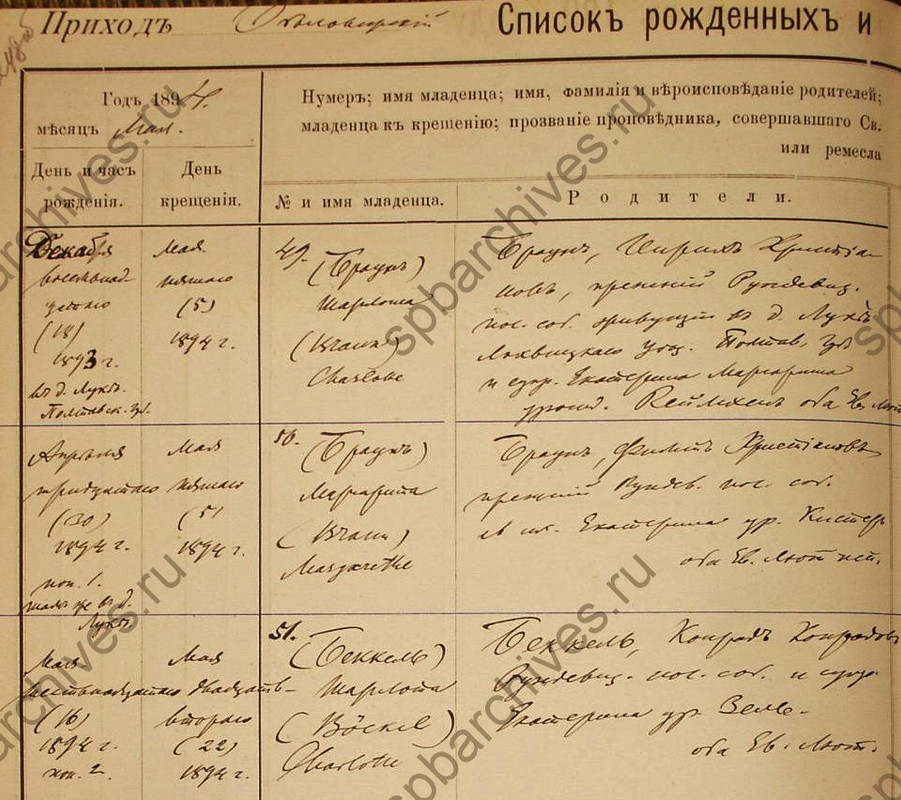 Приходъ Бѣловежскій Списокъ рожденныхъ и
Годъ 1894.
мѣсяцъ Май.
Нумеръ; имя младенца; имя, фамилія и вѣроисповѣданіе родителей;
младенца къ крещенію; прозваніе проповѣдника, совершавшаго Св.
или ремесла
День и часъ рожденія.
День крещенія.
№ и имя младенца.
Родители.
Декабря
восемнад
цатаго
(18)
1893 г.
въ д. Лукѣ
Полтавск. губ.
Мая
пятаго
(5)
1894 г.
49.
(Браунъ)
Шарлота
(Braun)
Charlotte
Браунъ, Христіа-
новъ,
пос. соб. въ д. Лукѣ
Лохвицкаго уѣзд. Полтав. губ.
и супр. Екатерина Маргарита
урожд. оба Ев. Лют
Апрѣля
тридцатаго
(30)
1894 г.
поп. 1.
тамъ же въ д.
Лукѣ
Мая
пятаго
(5)
1894 г.
50.
(Браунъ)
Маргарита
(Braun)
Margarethe
Браунъ, Филиппъ Христіановъ
Рундев. пос. соб.
Екатерина ур. Кистеръ
оба Ев. Лют.
Мая
шестнадцатаго
(16)
1894 г.
поп. 2.
Мая
двадцать-
втораго
(22)
1894 г.
51.
(Беккель)
Шарлота
(Böckel)
Charlotte
Беккель, Конрадъ Конрадовъ
Рундевиз. пос. соб. и супр
Екатерина ур. Зель.
оба Ев. Лют.
spbarchives.ru